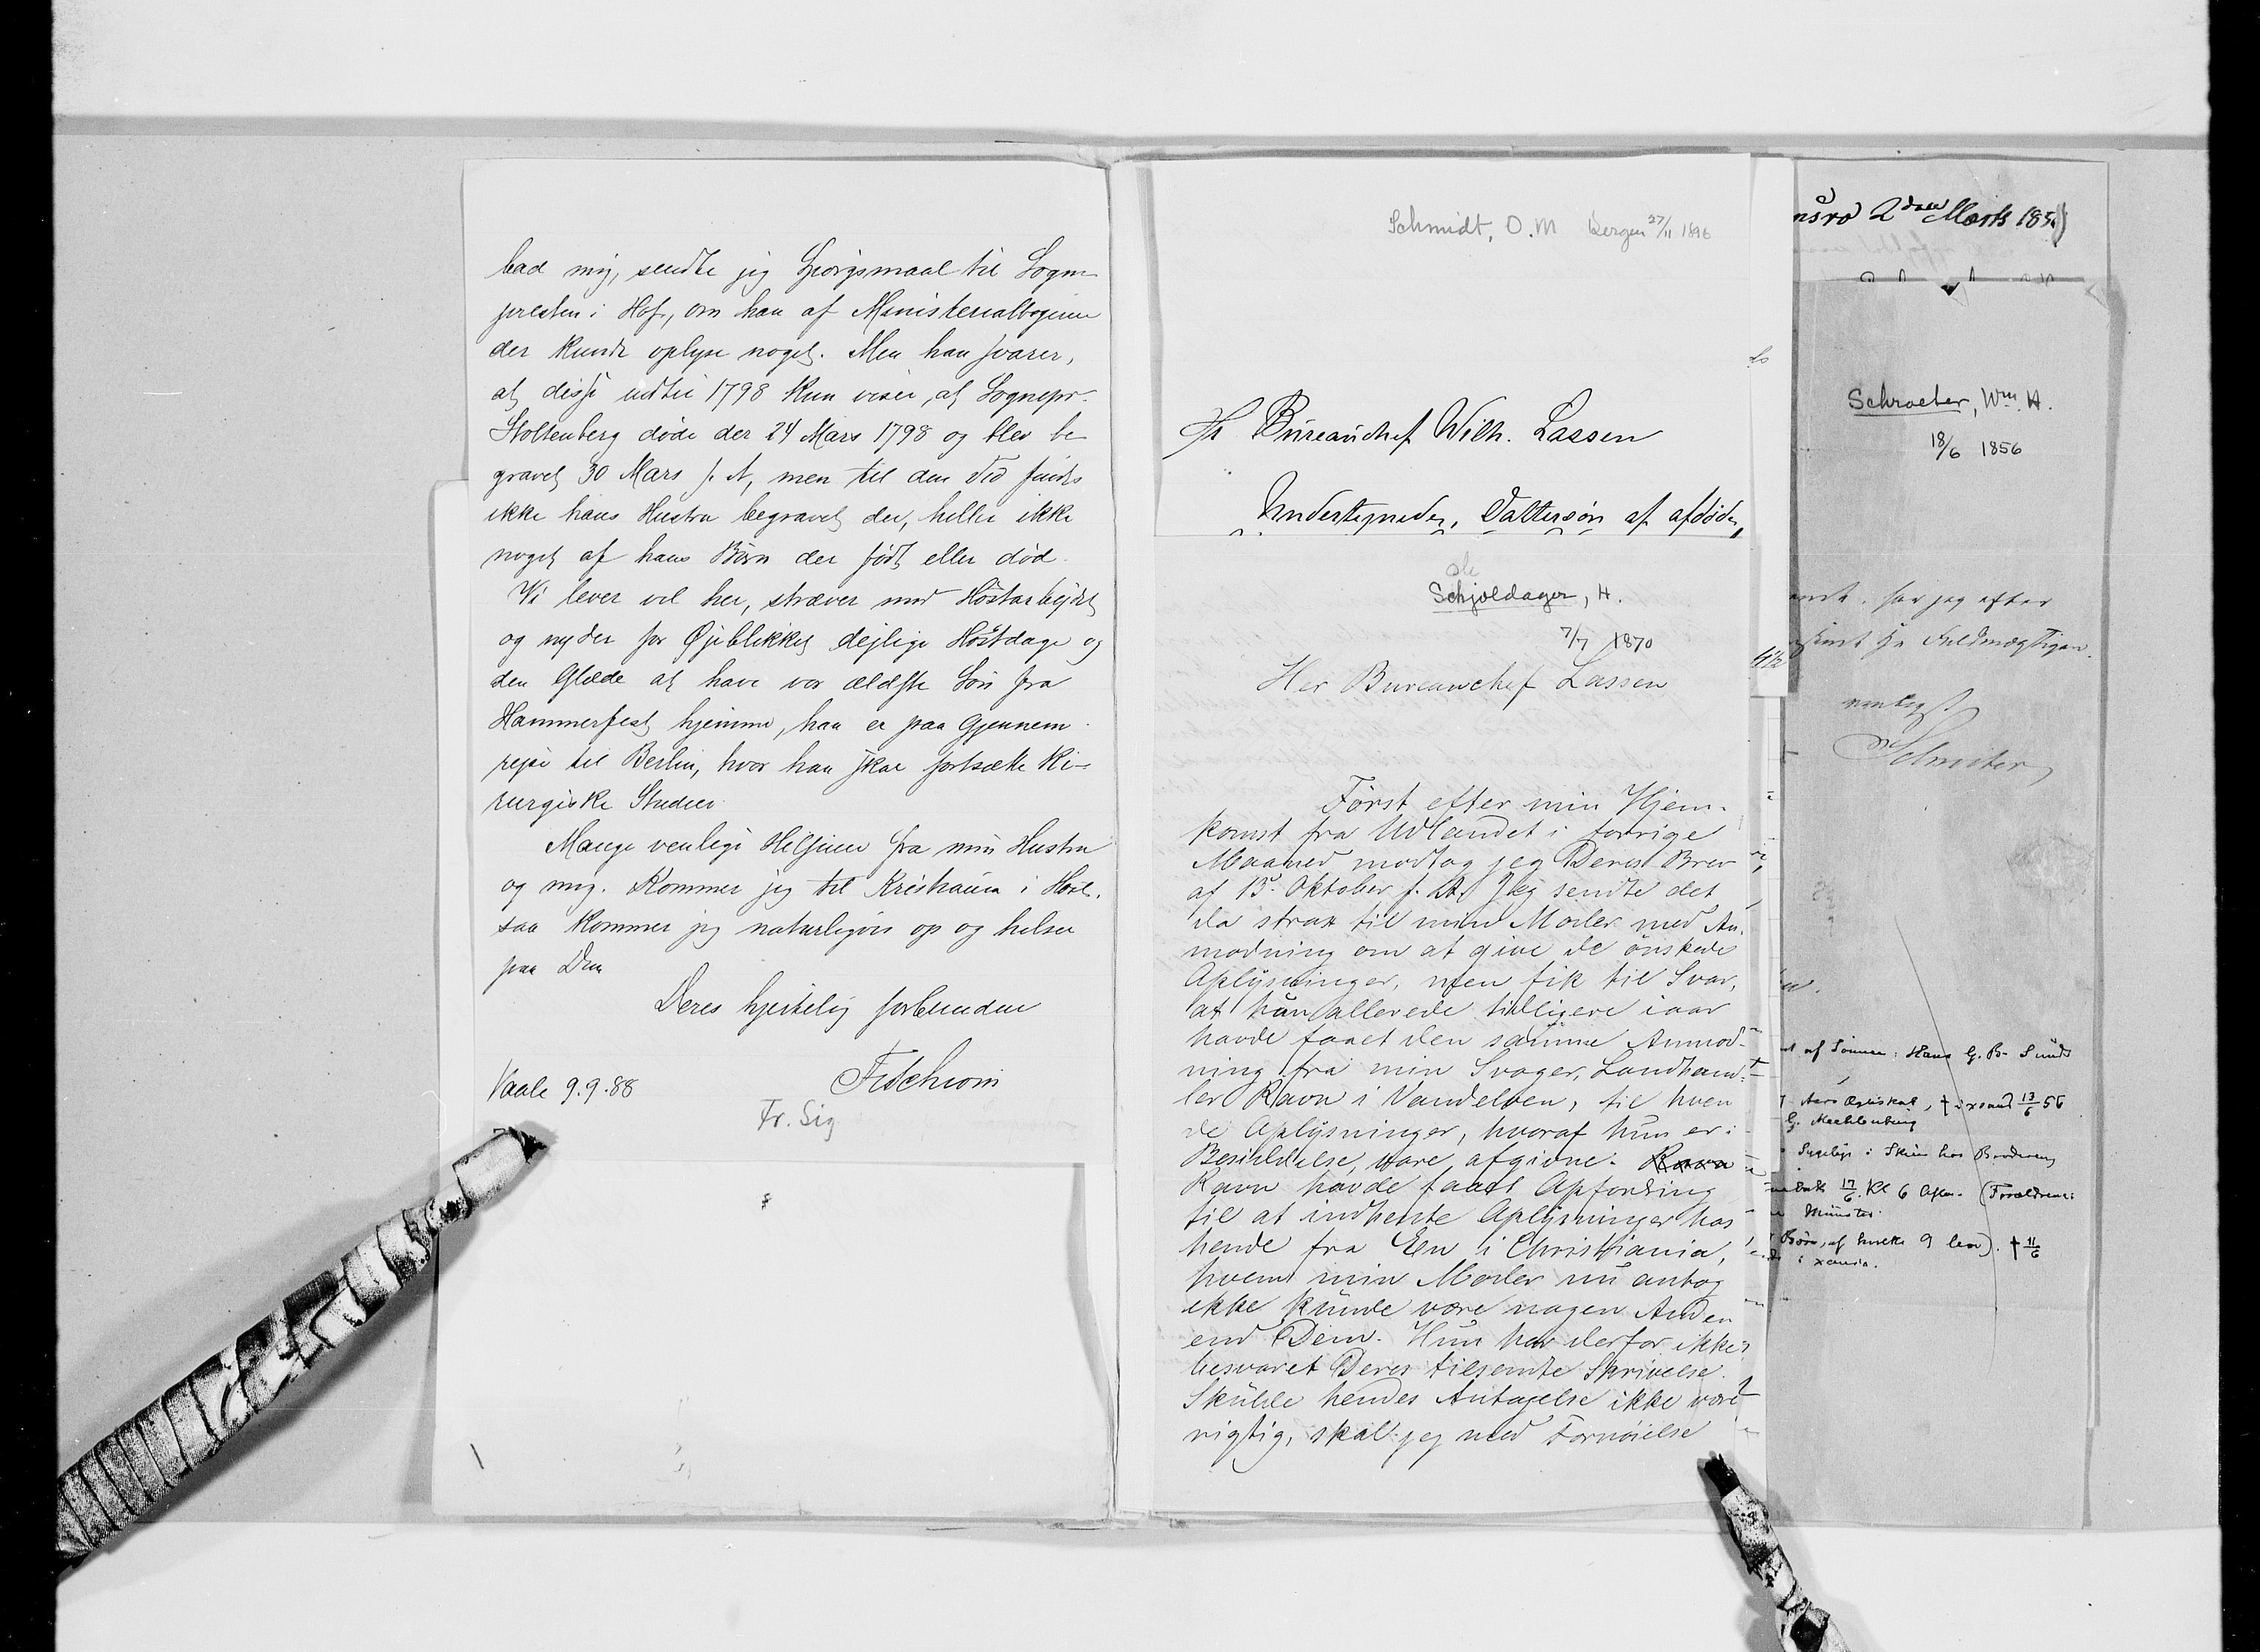 bad mig, sendte jeg Spørgsmaal til Sogne
presten i Hof, om han af Ministerialbøgerne
der kunde oplyse noget. Men han svarer,
at disse indtil 1798 kun viser, at Sognepr.
Stoltenberg døde der 24 Mars 1798 og blev be
gravet 30 Mars s. A, men til den Tid findes
ikke hans Hustru begravet der, heller ikke
noget af hans Børn der født eller død.
Vi lever vel her, stræver med Høstarbejdet
og nyder for Øjeblikket dejlige Høstdage og
den Glæde at have vor ældste Søn fra
Hammerfest hjemme, han er paa Gjennem
rejse til Berlin, hvor han skal fortsætte Ki-
rurgiske Studier.
Mange venlige Hilsener fra min Hustru
og mig. Kommer jeg til Kristiania i Høst,
saa kommer jeg naturligvis op og hilser
paa Dem
Deres hjertelig forbundne
Vaale 9.9.88
Fr. Sig
Schmidt, O. M Bergen 27/11 1896
Hr Bureauchef Wilh. Lassen
Undertegnede, Dattersøn af afdøde
Ole
Schjoldager, H.
7/7 1870
Her Bureauchef Lassen
Først efter min Hjem-
komst fra Udlandet i forrige
Maaned modtog jeg Deres Brev
af 13. Oktober f. A. Jeg sendte det
da strax til min Moder med An-
modning om at give de ønskede
Oplysninger, men fik til Svar,
at hun allerede tidligere iaar
havde faaet den samme Anmod-
ning fra min Svoger, Landhand-
ler Ravn i Vandelven, til hvem
de Oplysninger, hvoraf hun er i
Besiddelse, vare afgivne. Ravn
Ravn havde faaet Opfordring
til at indhente Oplysninger hos
hende fra Een i Christiania,
hvem min Moder nu antog
ikke kunde være nogen Anden
end Dem. Hun har derfor ikke
besvaret Deres tilsendte Skrivelse.
Skulde hendes Antagelse ikke være
rigtig, skal jeg med Fornøielse
2den Marts
Schroeter, Wm. H.
18/6 1856
har jeg efter
Hr Fuldmægtigen
venligst
af Sønnen: Hans G. B. Sunds
† i Xania 13/6 56
G. Mechlenburg
i Skien hos Broderen
17/6. Kl 6 (Forældrene:
Münster.
Børn, af hvilke 9 leve). † 11/6
i Xania.